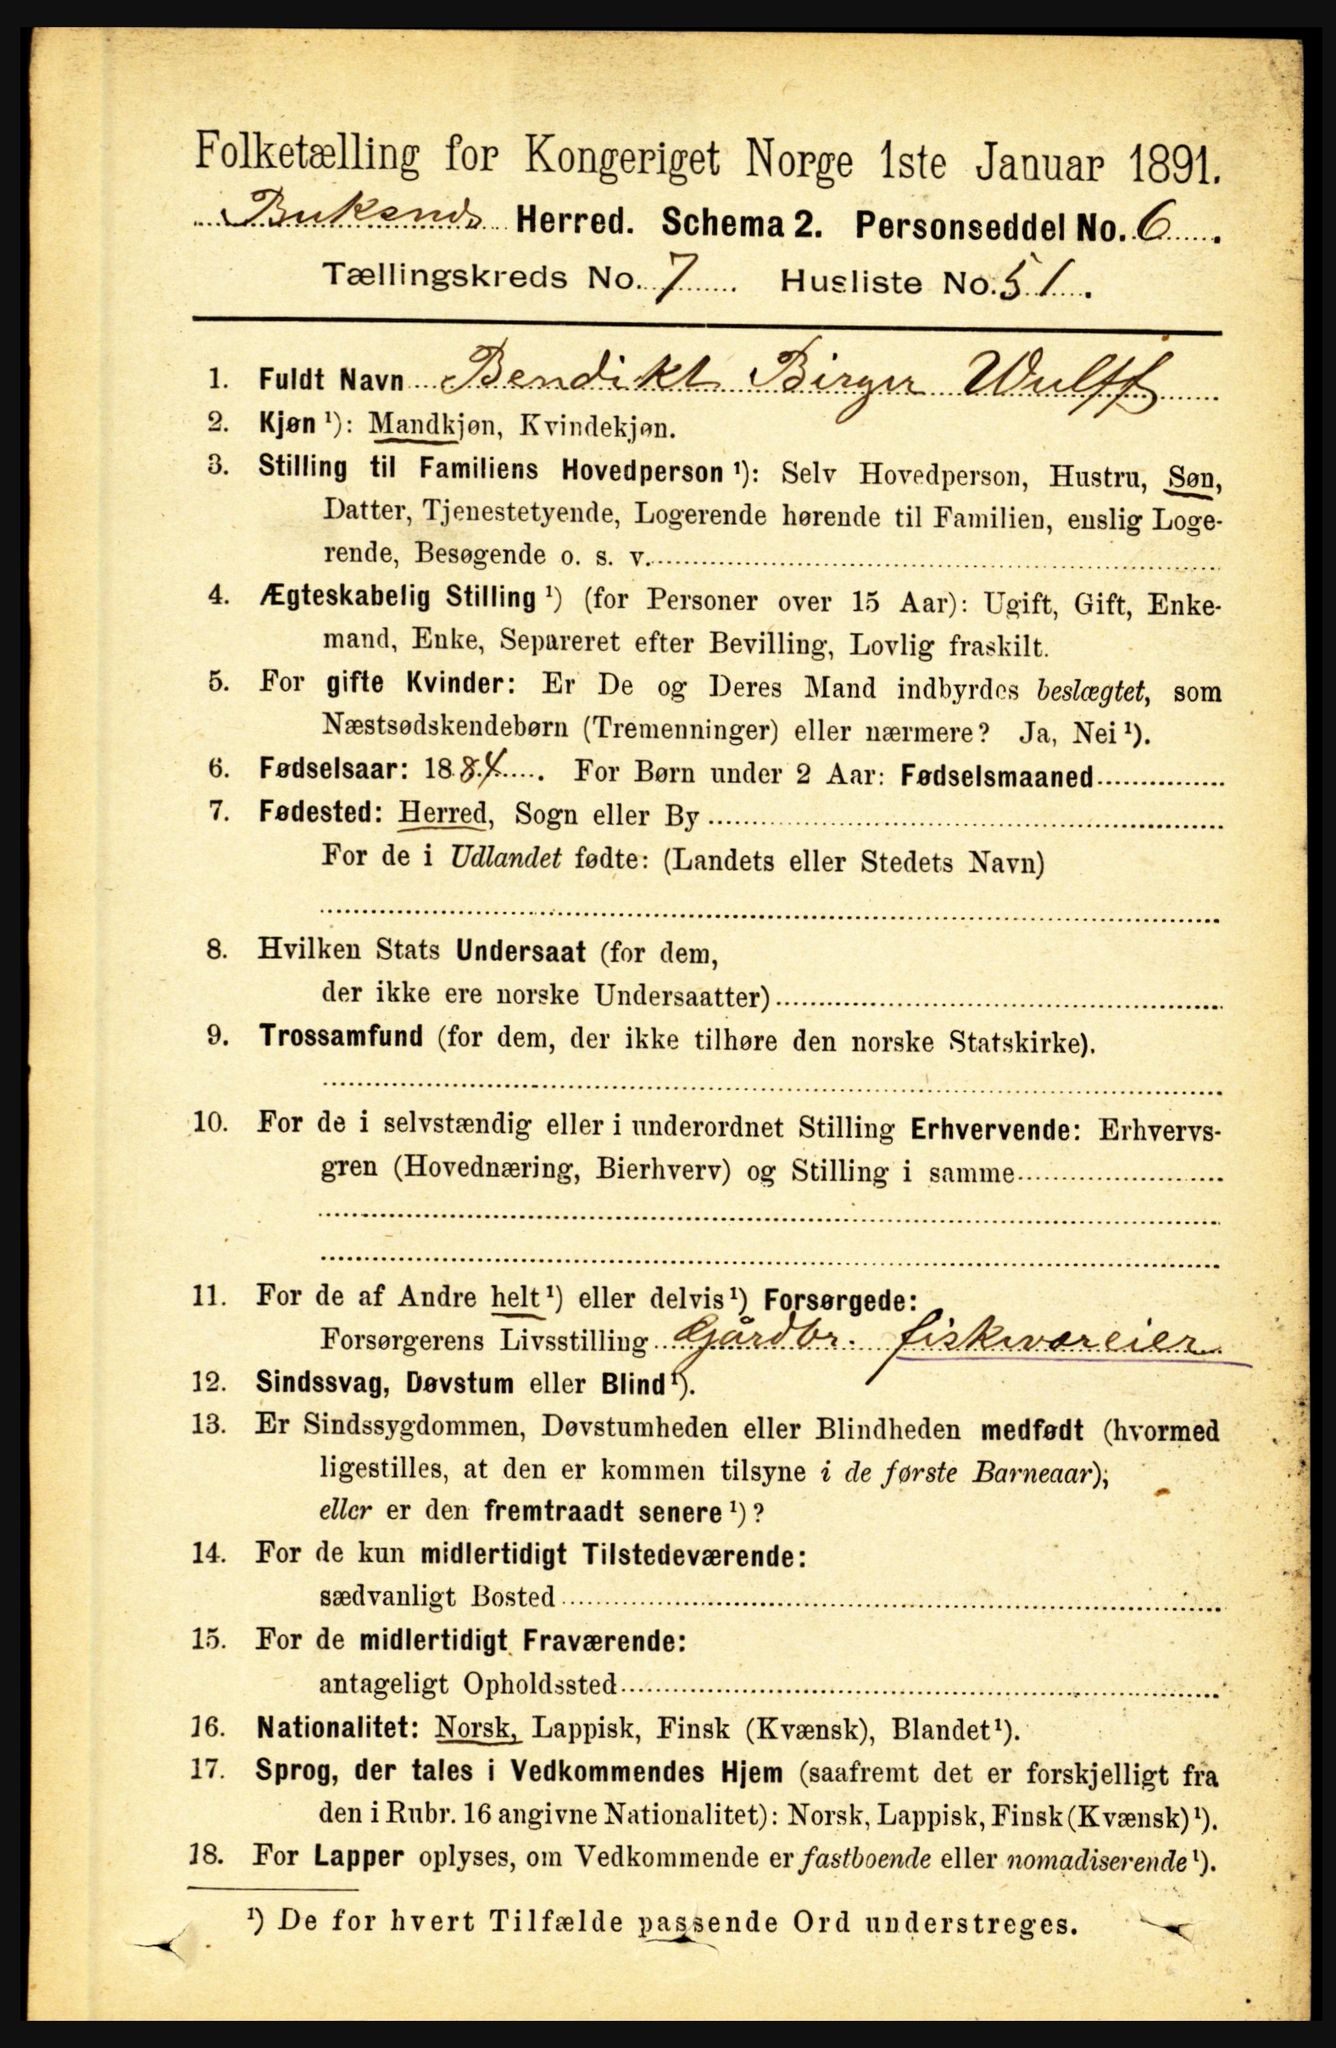 Folketælling for Kongeriget Norge 1ste Januar 1891.
Buksnes Herred. Schema 2. Personseddel No. 6.
Tællingskreds No. 7 Husliste No. 51.
1. Fuldt Navn Bendikt Birger Wulff
2. Kjøn ¹): Mandkjøn, Kvindekjøn.
3. Stilling til Familiens Hovedperson ¹): Selv Hovedperson, Hustru, Søn,
Datter, Tjenestetyende, Logerende hørende til Familien, enslig Loge-
rende, Besøgende o. s. v.
4. Ægteskabelig Stilling ¹) (for Personer over 15 Aar): Ugift, Gift, Enke-
mand, Enke, Separeret efter Bevilling, Lovlig fraskilt.
5. For gifte Kvinder: Er De og Deres Mand indbyrdes beslægtet, som
Næstsødskendebørn (Tremenninger) eller nærmere? Ja, Nei ¹).
6. Fødselsaar: 1884. For Børn under 2 Aar: Fødselsmaaned
7. Fødested: Herred, Sogn eller By
For de i Udlandet fødte: (Landets eller Stedets Navn)
8. Hvilken Stats Undersaat (for dem,
der ikke ere norske Undersaatter)
9. Trossamfund (for dem, der ikke tilhøre den norske Statskirke).
10. For de i selvstændig eller i underordnet Stilling Erhvervende: Erhvervs-
gren (Hovednæring, Bierhverv) og Stilling i samme
11. For de af Andre helt ¹) eller delvis ¹) Forsørgede:
Forsørgerens Livsstilling Gårdbr. fiskværeier
12. Sindssvag, Døvstum eller Blind ¹).
13. Er Sindssygdommen, Døvstumheden eller Blindheden medfødt (hvormed
ligestilles, at den er kommen tilsyne i de første Barneaar);
eller er den fremtraadt senere ¹)?
14. For de kun midlertidigt Tilstedeværende:
sædvanligt Bosted
15. For de midlertidigt Fraværende:
antageligt Opholdssted
16. Nationalitet: Norsk, Lappisk, Finsk (Kvænsk), Blandet ¹).
17. Sprog, der tales i Vedkommendes Hjem (saafremt det er forskjelligt fra
den i Rubr. 16 angivne Nationalitet): Norsk, Lappisk, Finsk (Kvænsk) ¹).
18. For Lapper oplyses, om Vedkommende er fastboende eller nomadiserende ¹).
¹) De for hvert Tilfælde passende Ord understreges.